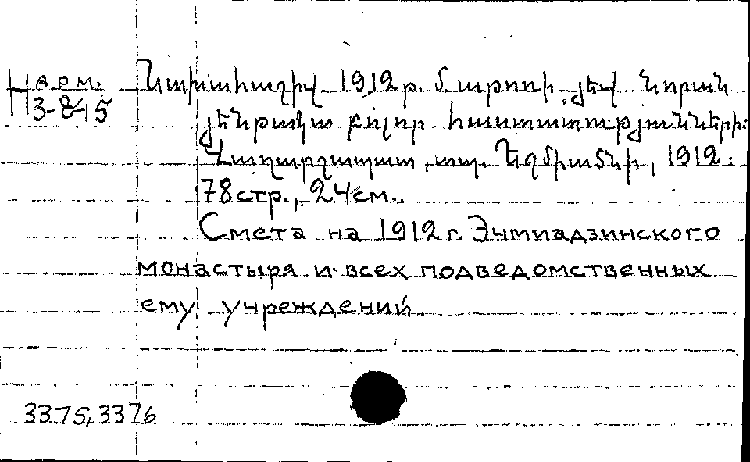 Нарм. Նախահաշիվ 1912թ. Մայրուն. յեվ նորան
3-845 յենթակա բոլոր հաստատություններին:
Վաղարշապատ, տպ. Եջմիածնի, 1912.
78стр., 24см.
Смета на 1912 г. Эчмиадзинского
монастыря и всех подведомственных
ему учреждений
3375, 3376